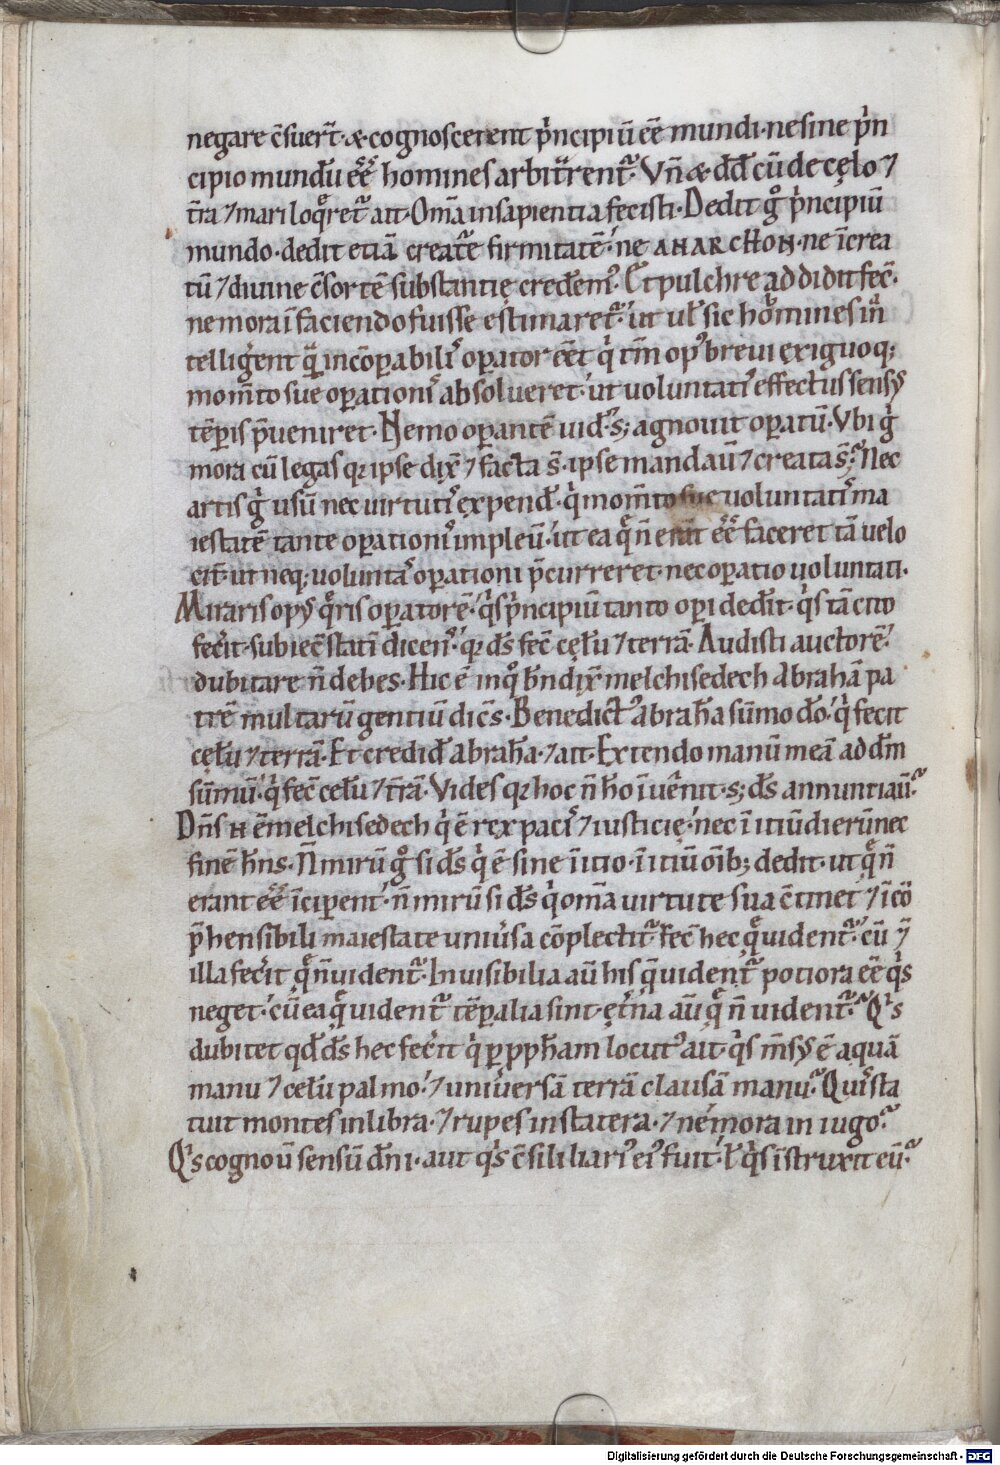 negare c̄suert̄·&cognoscerent p̓ncipiū eē mundi·ne sine p̓n
cipio mundū eē̄ homines arbitrͣrentᷣ· Vn̄ & dd̄ cū de cęlo ⁊
t̄ra ⁊ mari loqͤretᷣ ait·Om̄a in sapientia fecisti·Dedit gͦ p̓ncipiū
mundo·dedit etiā creatᷣe firmitatē·ne ANARCHON·ne īcrea
tū ⁊ diuine c̄sortē substantię credem᷒· Et pulchre addidit fec̄·
ne mora ī faciendo fuisse estimaretᷣ·ut uł sic homines in̄
telligerent qͣ incōꝑabilis oꝑator eēt q̓ tm̄ op᷒ breui exiguoq;
mom̄to sue oꝑationis absolueret·ut uoluntatis effectus sensū
tēꝑis p̄ueniret·Nemo oꝑantē uid̄·s; agnouit oꝑatū·Vbi gͦ
mora cū legas qꝛ ipse dix̄ ⁊ facta s̄·ipse mandau̅ ⁊ creata s̄· Nec
artis gͦ usū nec uirtutis expend̄·q̓ mom̄to sue uoluntatis ma
iestatē tante oꝑationis impleū·ut ea q̄ n̄ erant eē̄ faceret tā uelo
cit̄·ut neq; uoluntas oꝑationi p̄curreret·nec oꝑatio uoluntati·
Miraris op᷒ qͤris oꝑatorē·q̓s p̓ncipiū tanto oꝑi dedit·q̓s tā cito
fecit·subiec̄ statī dicen̄·qꝛ ds̄ fec̄ cęlū ⁊ terrā·Audisti auctorē·
dubitare n̄ debes·Hic ē inqͦ bn̄dix̄ melchisedech abrahā pa
trē multarū gentiū dic̄s·Benedict᷒ abrahā sūmo dō·q̓ fecit
cęlū ⁊ terrā·Et credid̄ abrahā·⁊ ait·Extendo manū meā ad dm̄
sūmū·q̓ fec̄ celū ⁊ t̄rā·Vides qꝛ hoc n̄ hō īuenit·s; ds̄ annuntiau̅·
Dn̄s N ē melchisedech q̓ ē rex pacis ⁊ iusticię·nec īitiū dierū nec
finē hn̄s·N̄ mirū gͦ si ds̄ q̓ ē sine īitio·īitiū oīb; dedit·ut qͤ n̄
erant eē̄ īciꝑent·n̄ mirū si ds̄ q̓ om̄a uirtute sua c̄tinet ⁊ īcō
p̄hensibili maiestate uniusa cōplectitᷣ·fec̄ hec qͤ uidentᷣ·cū ⁊
illa fecit qͤ n̄ uidentᷣ·Inuisibilia au̅ his qͤ uidentᷣ potiora eē q̓s
neget·cū ea qͤ uidentᷣ tēꝑalia sint·ęt̄na au̅ qͤ n̄ uidentᷣ· Q̓s
dubitet qd̄ ds̄ hec fecit q̓ ꝑ pphām locut᷒ ait·q̓s m̄sus ē aquā
manu ⁊ celū palmo·⁊ uniuersā terrā clausā manu· Quis sta
tuit montes in libra·⁊ rupes in statera·⁊ nemora in iugo·
Q̓s cognou̅ sensū dn̄i·aut q̓s c̄siliarius ei᷒ fuit·ł q̓s īstruxit eū·
Digitalisierung gefördert durch die Deutsche Forschungsgemeinschaft - DFG